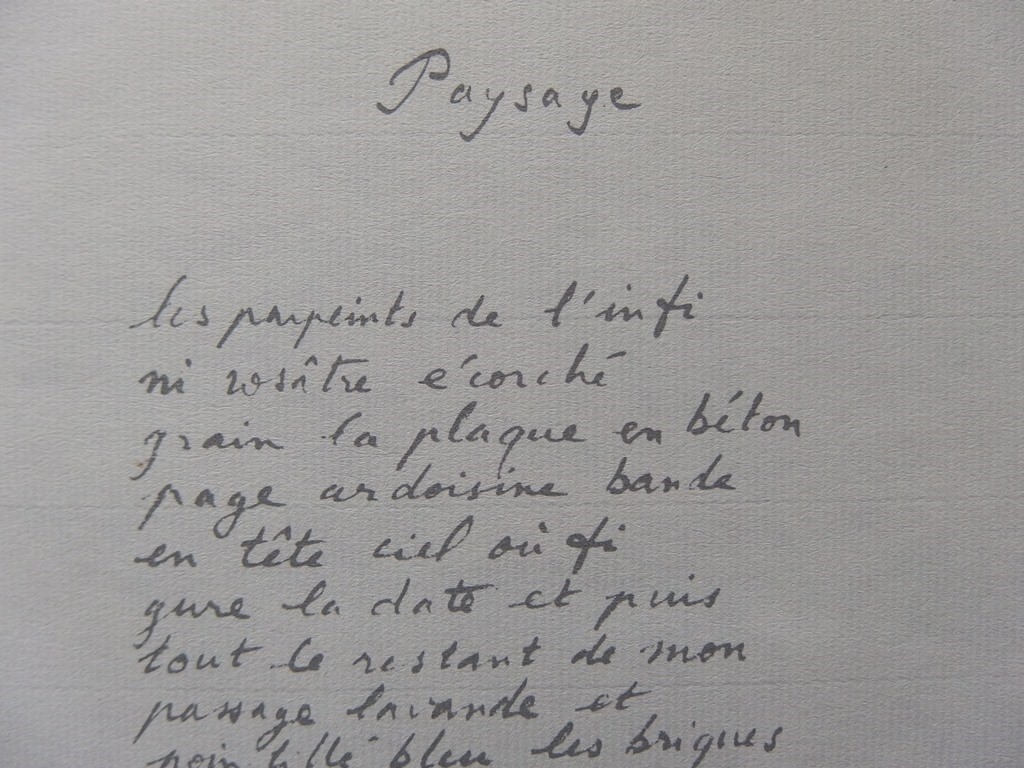 Paysage
les parpeints de l'infi
ni rosâtre écorché
grain la plaque en béton
page ardoisine bande
en tête ciel où fi
gure la date et puis
tout le restant de mon
passage lavande et
pointillé bleu les briques